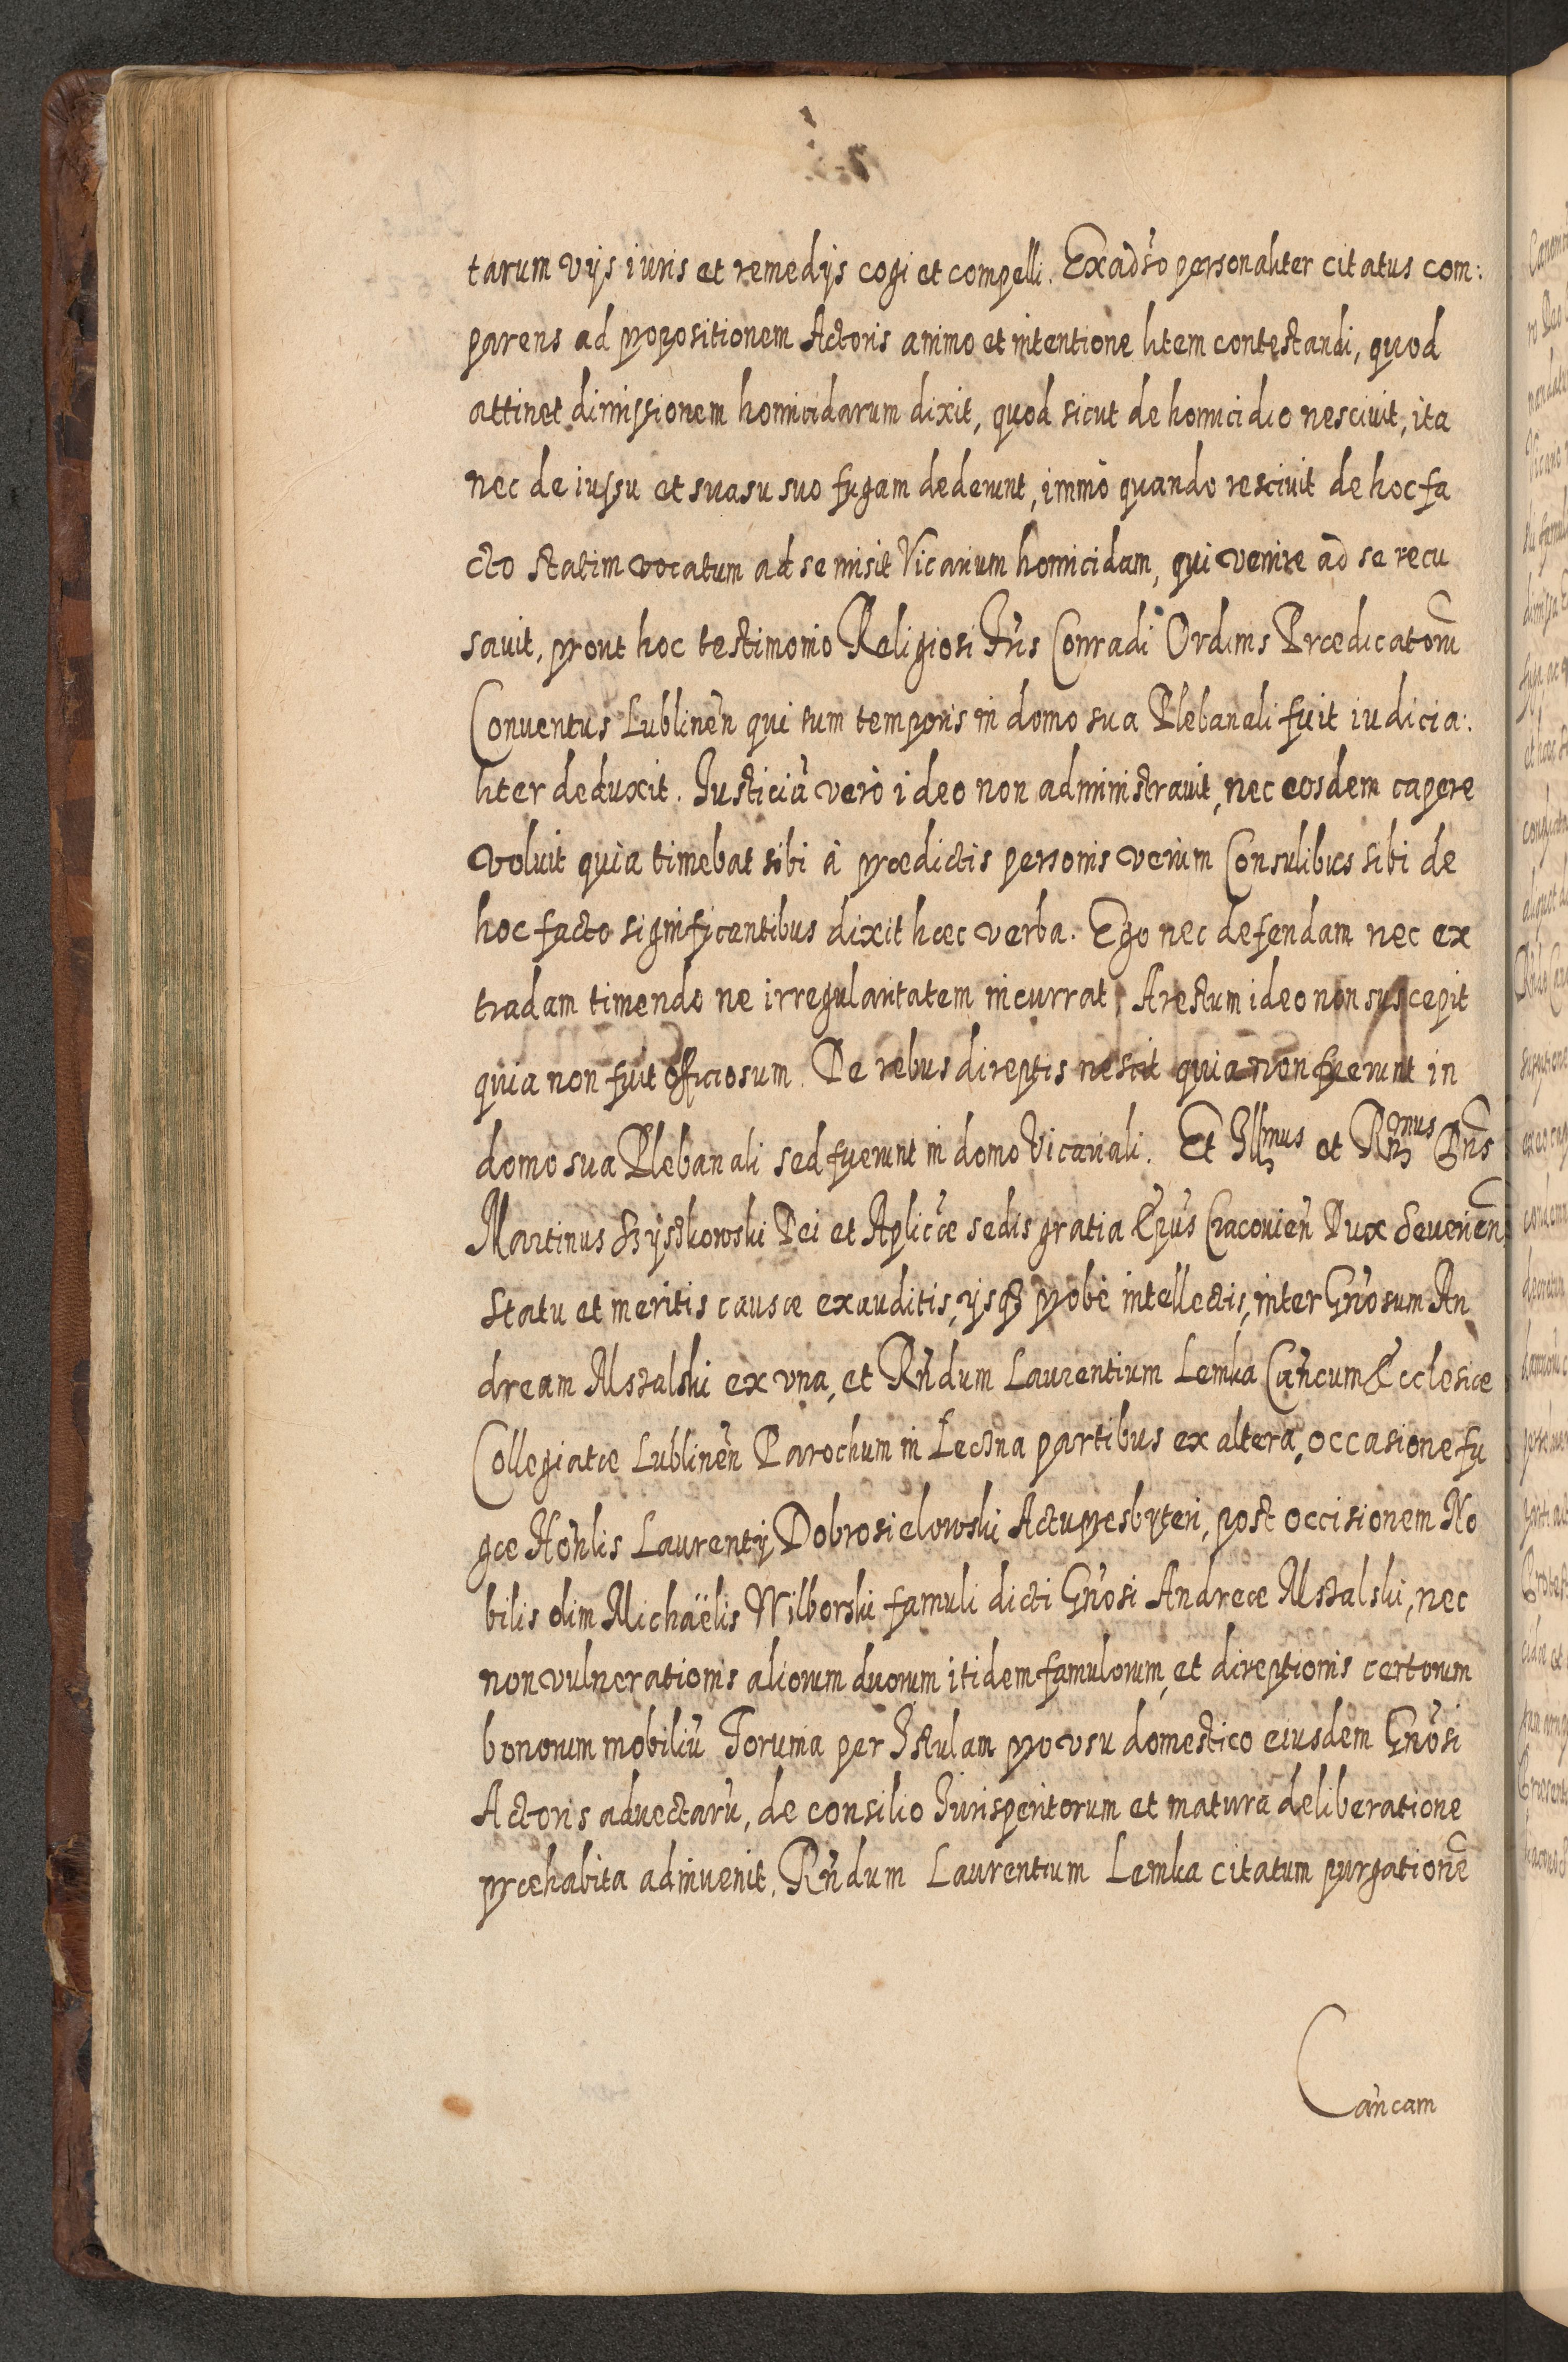 tarum vijs iuris et remedijs cogi et compelli. Ex adỏ personaliter citatus com:
parens ad propositionem Actoris animo et intentione litem contestandi, quod
attinet dimissionem homicidarum dixit, quod sicut de homicidio nesciuit, ita
nec de iussu et suasu suo fugam dederunt, immò quando resciuit de hoc fa
cto statim vocatum ad se misit Vicarium homicidam, qui venire ad se recu
sauit, prout hoc testimonio Religiosi Fr̃is Conradi Ordinis Prædicatorũ
Conuentus Lublineñ qui tum temporis in domo sua Plebanali fuit iudicia:
liter deduxit. Iusticiã verò ideo non administrauit, nec eosdem capere
voluit quia timebat sibi à prædictis personis verùm Consulibus sibi de
hoc facto significantibus dixit hæc verba. Ego nec defendam nec ex
tradam timendo ne irregularitatem incurrat, Arestum ideo non suscepit
quia non fuit officiosum. De rebus direptis nescit quia non fuerunt in
domo sua Plebanali sed fuerunt in domo Vicariali. Et Illmus et Rñmus Dñs
Martinus Szyszkowski Dei et Aplicæ sedis gratia Ep̃us Cracouieñ Dux Seuerieñ
statu et meritis causæ exauditis, ijsqȝ probè intellectis, inter Gñosum An
dream Mstalski ex vna, et Rñdum Laurentium Lemka Cañcum Ecclesiæ
Collegiatæ Lublineñ Parochum in Leczna partibus ex altera, occasione fu
gæ Hoñlis Laurentij Dobrosielowski Actupresbyteri, post occisionem No
bilis olim Michaëlis Wilborski famuli dicti Gñosi Andreæ Mstalski, nec
non vulnerationis aliorum duorum itidem famulorum, et direptionis certorum
bonorum mobiliũ Torunia per Istulam pro vsu domestico eiusdem Gñosi
Actoris aduectarũ, de consilio Iurisperitorum et matura deliberatione
præhabita adinuenit, Rñdum Laurentium Lemka citatum purgationẽ
Cañcam